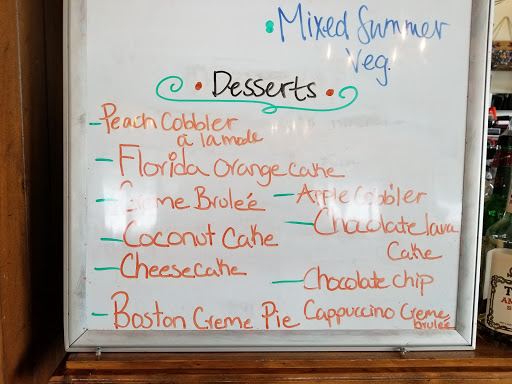 • Mixed Summer
Veg.
• Desserts •
- Peach Cobbler
a la mode
- Florida Orange Cake
- Creme Bruleé
- Coconut Cake
- Cheesecake
- Boston Creme Pie
- Apple Cobbler
- Chocolate lava
Cake
- Chocolate chip
Cappuccino Creme
bruleé